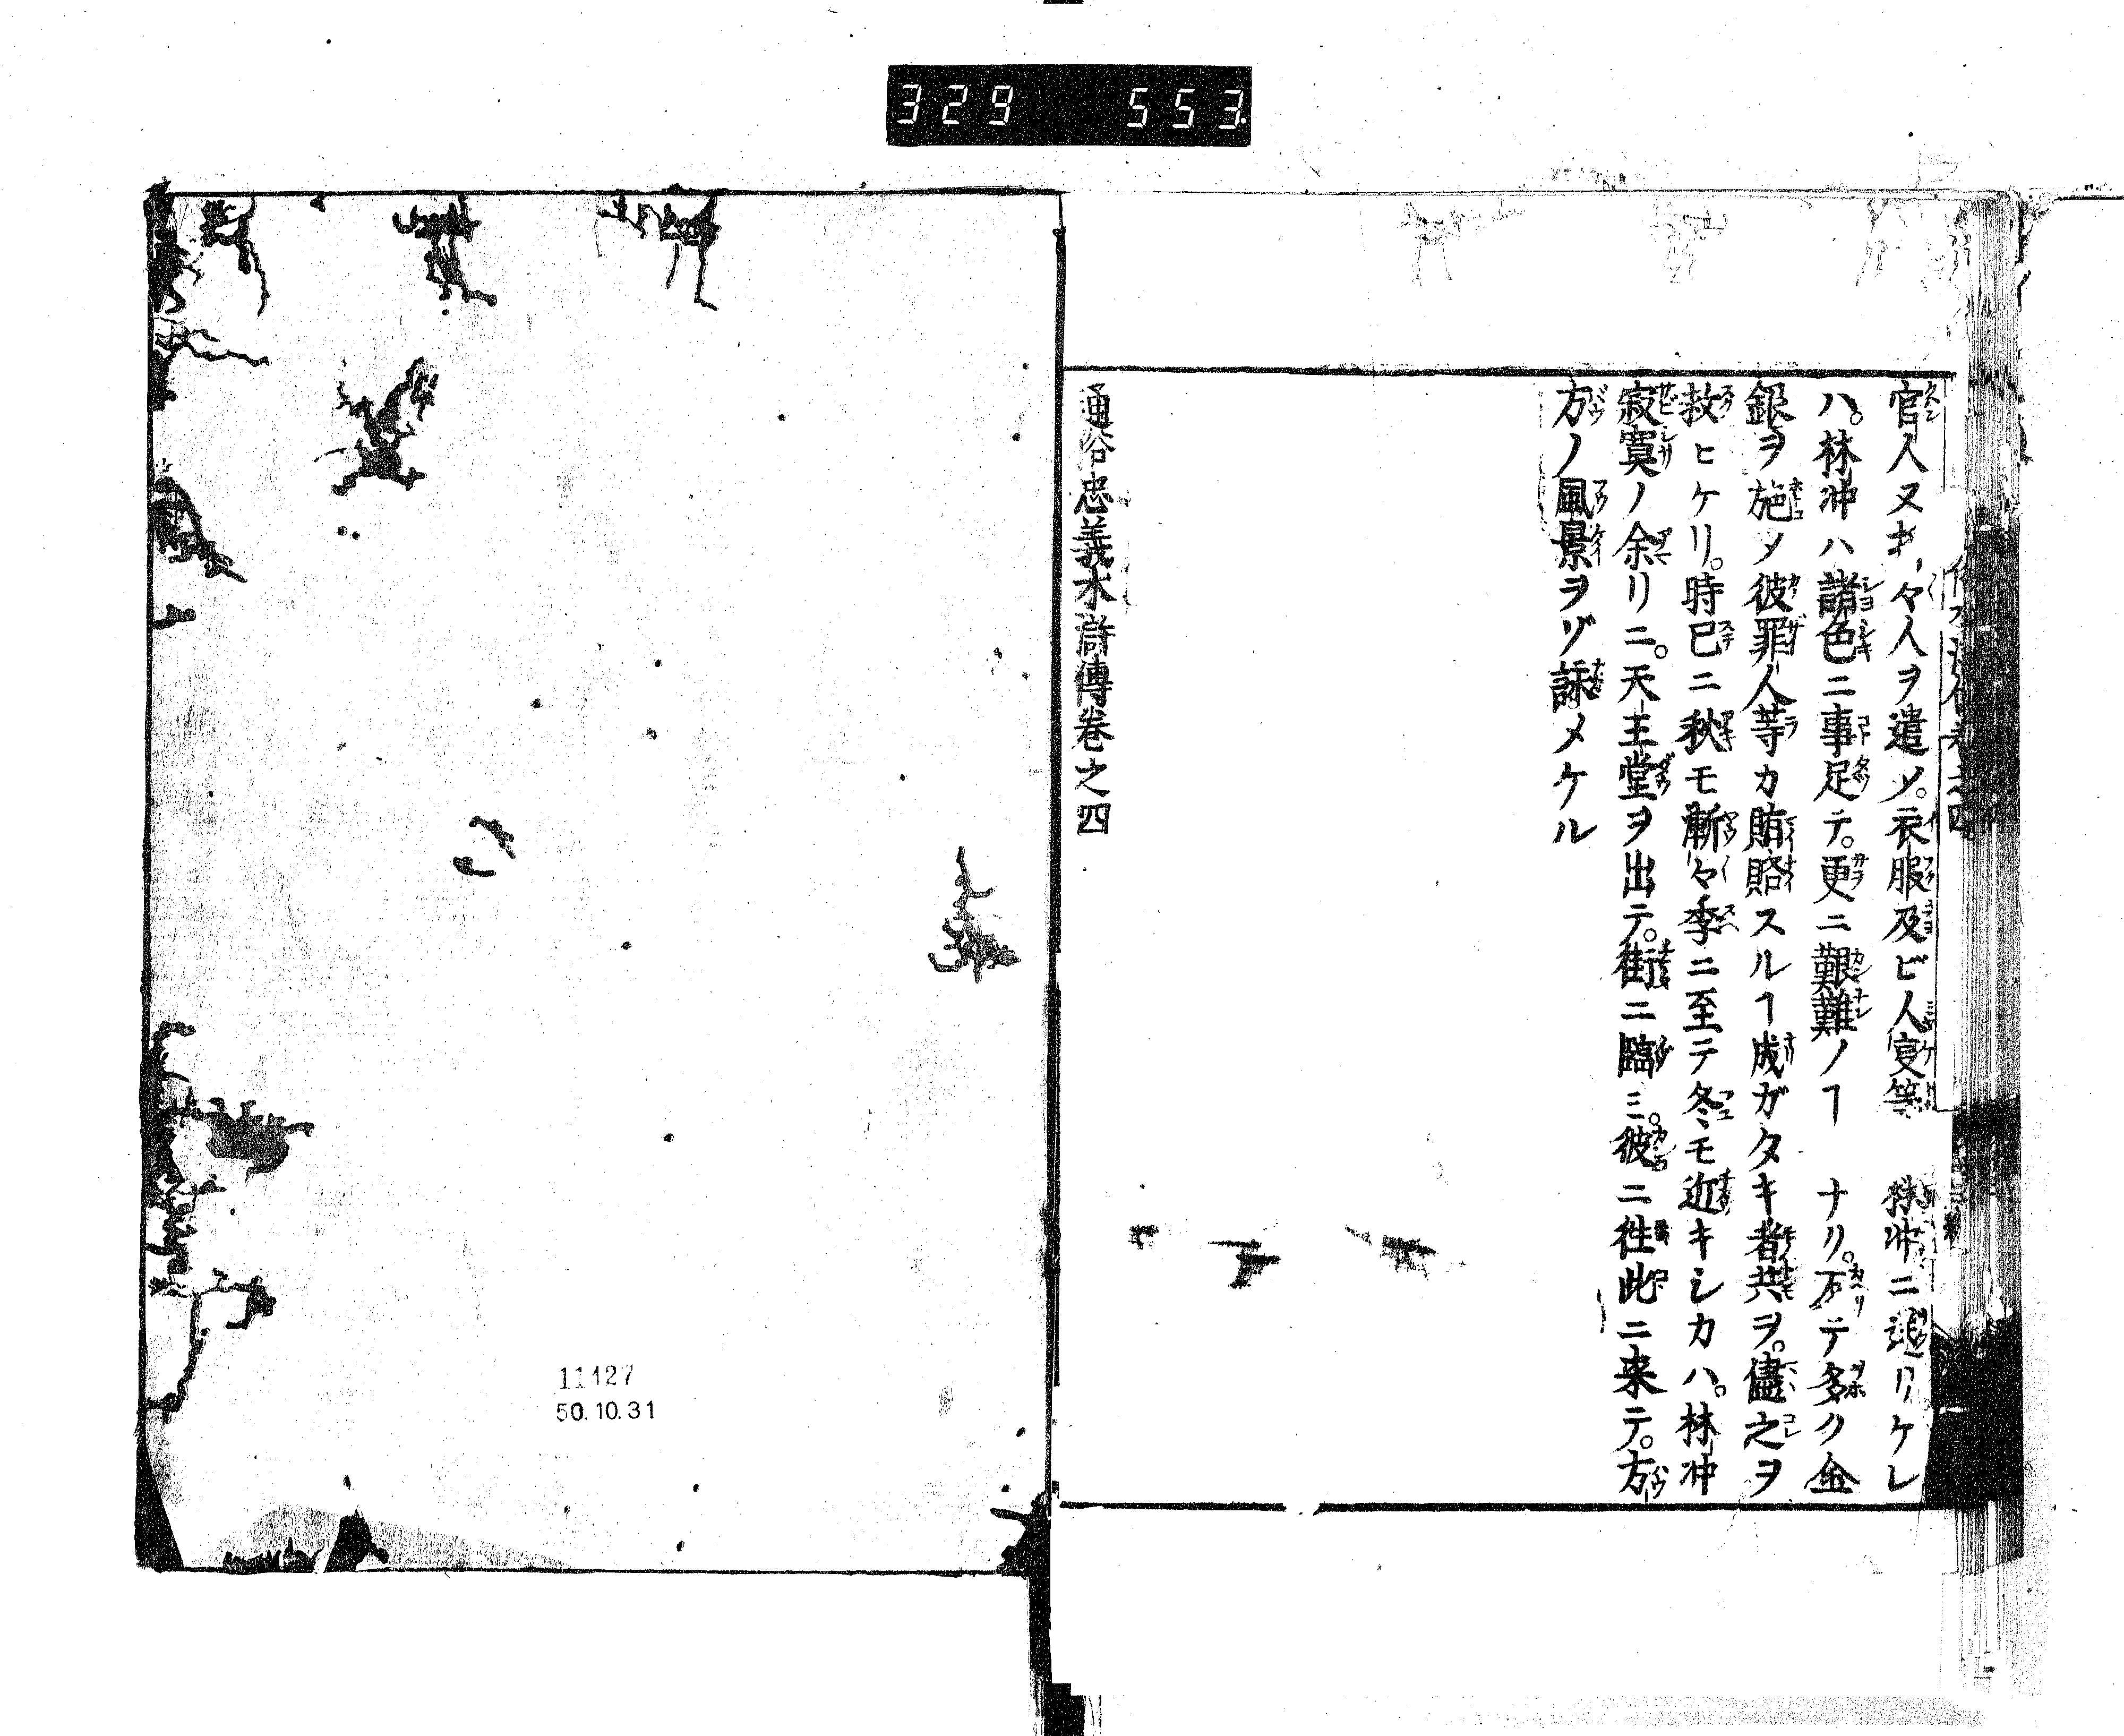 329 553
官人ヌキ々人ヲ遣ソ。衣服及ビ人夏等 林冲ニ送リケレ
ハ。林冲ハ諸色ニ事足テ。更ニ艱難ノヿ ナリ。万テ多ク金
銀ヲ施ソ彼罪人等カ賄賂スルヿ成ガタキ者共ヲ。儘之ヲ
救ヒケリ。時已ニ秋モ漸々季ニ至テ冬モ近キシカハ。林冲
寂寞ノ余リニ。天王堂ヲ出テ。街ニ臨ミ。彼ニ往此ニ来テ。方
方ノ風景ヲゾ詠メケル
通俗忠義水滸傳巻之四
11427
50.10.31